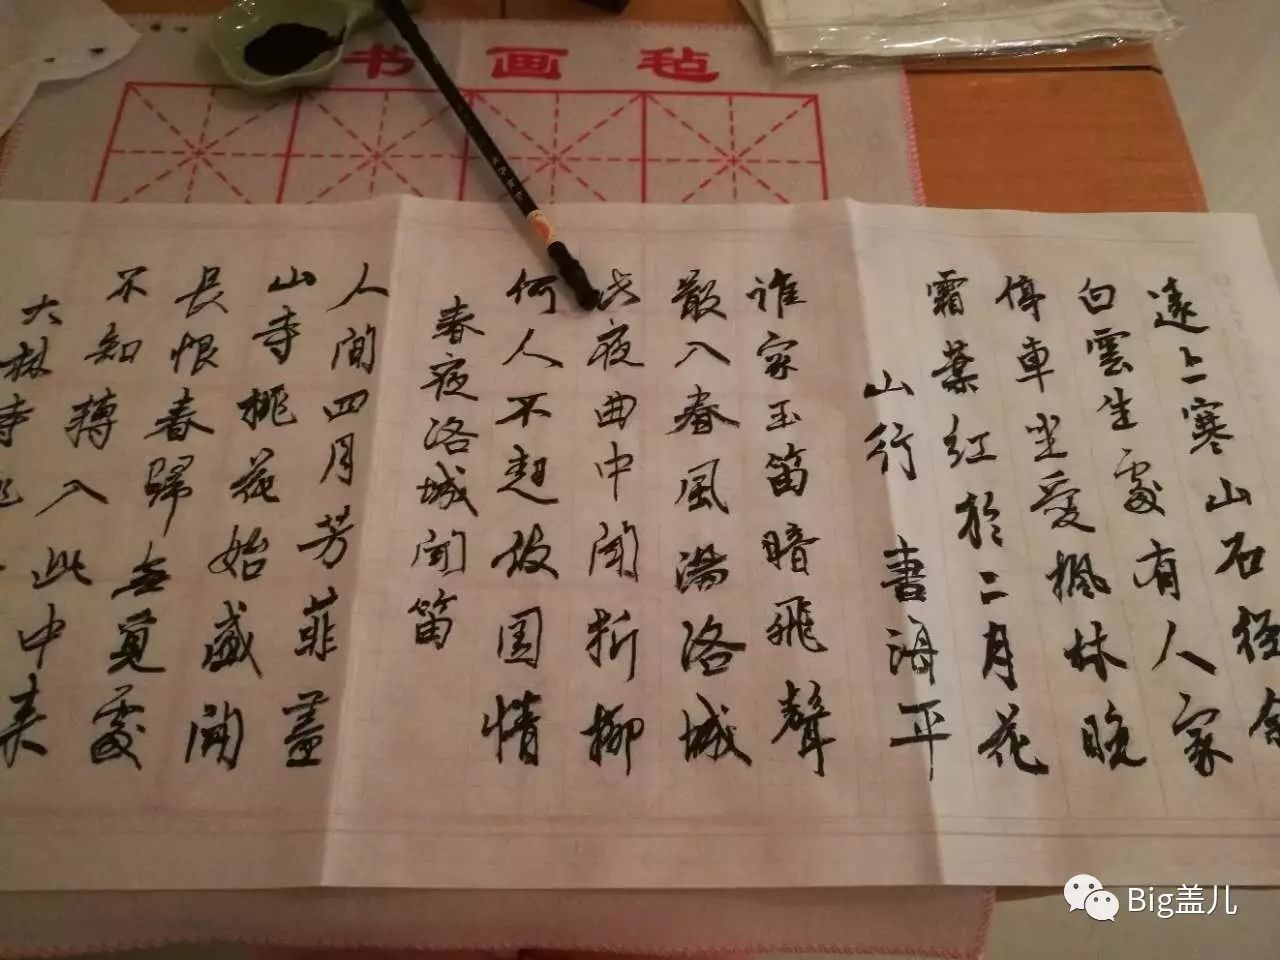 书画毡
遠上寒山石径
白雲生處有人家
停車坐愛楓林晚
霜葉红於二月花
山行 書海平
谁家玉笛暗飛聲
散入春風满洛城
此夜曲中闻折柳
何人不起故園情
春夜洛城闻笛
人間四月芳菲盡
山寺桃花始盛開
長恨春歸無覓處
不知轉入此中来
大林寺
Big盖儿